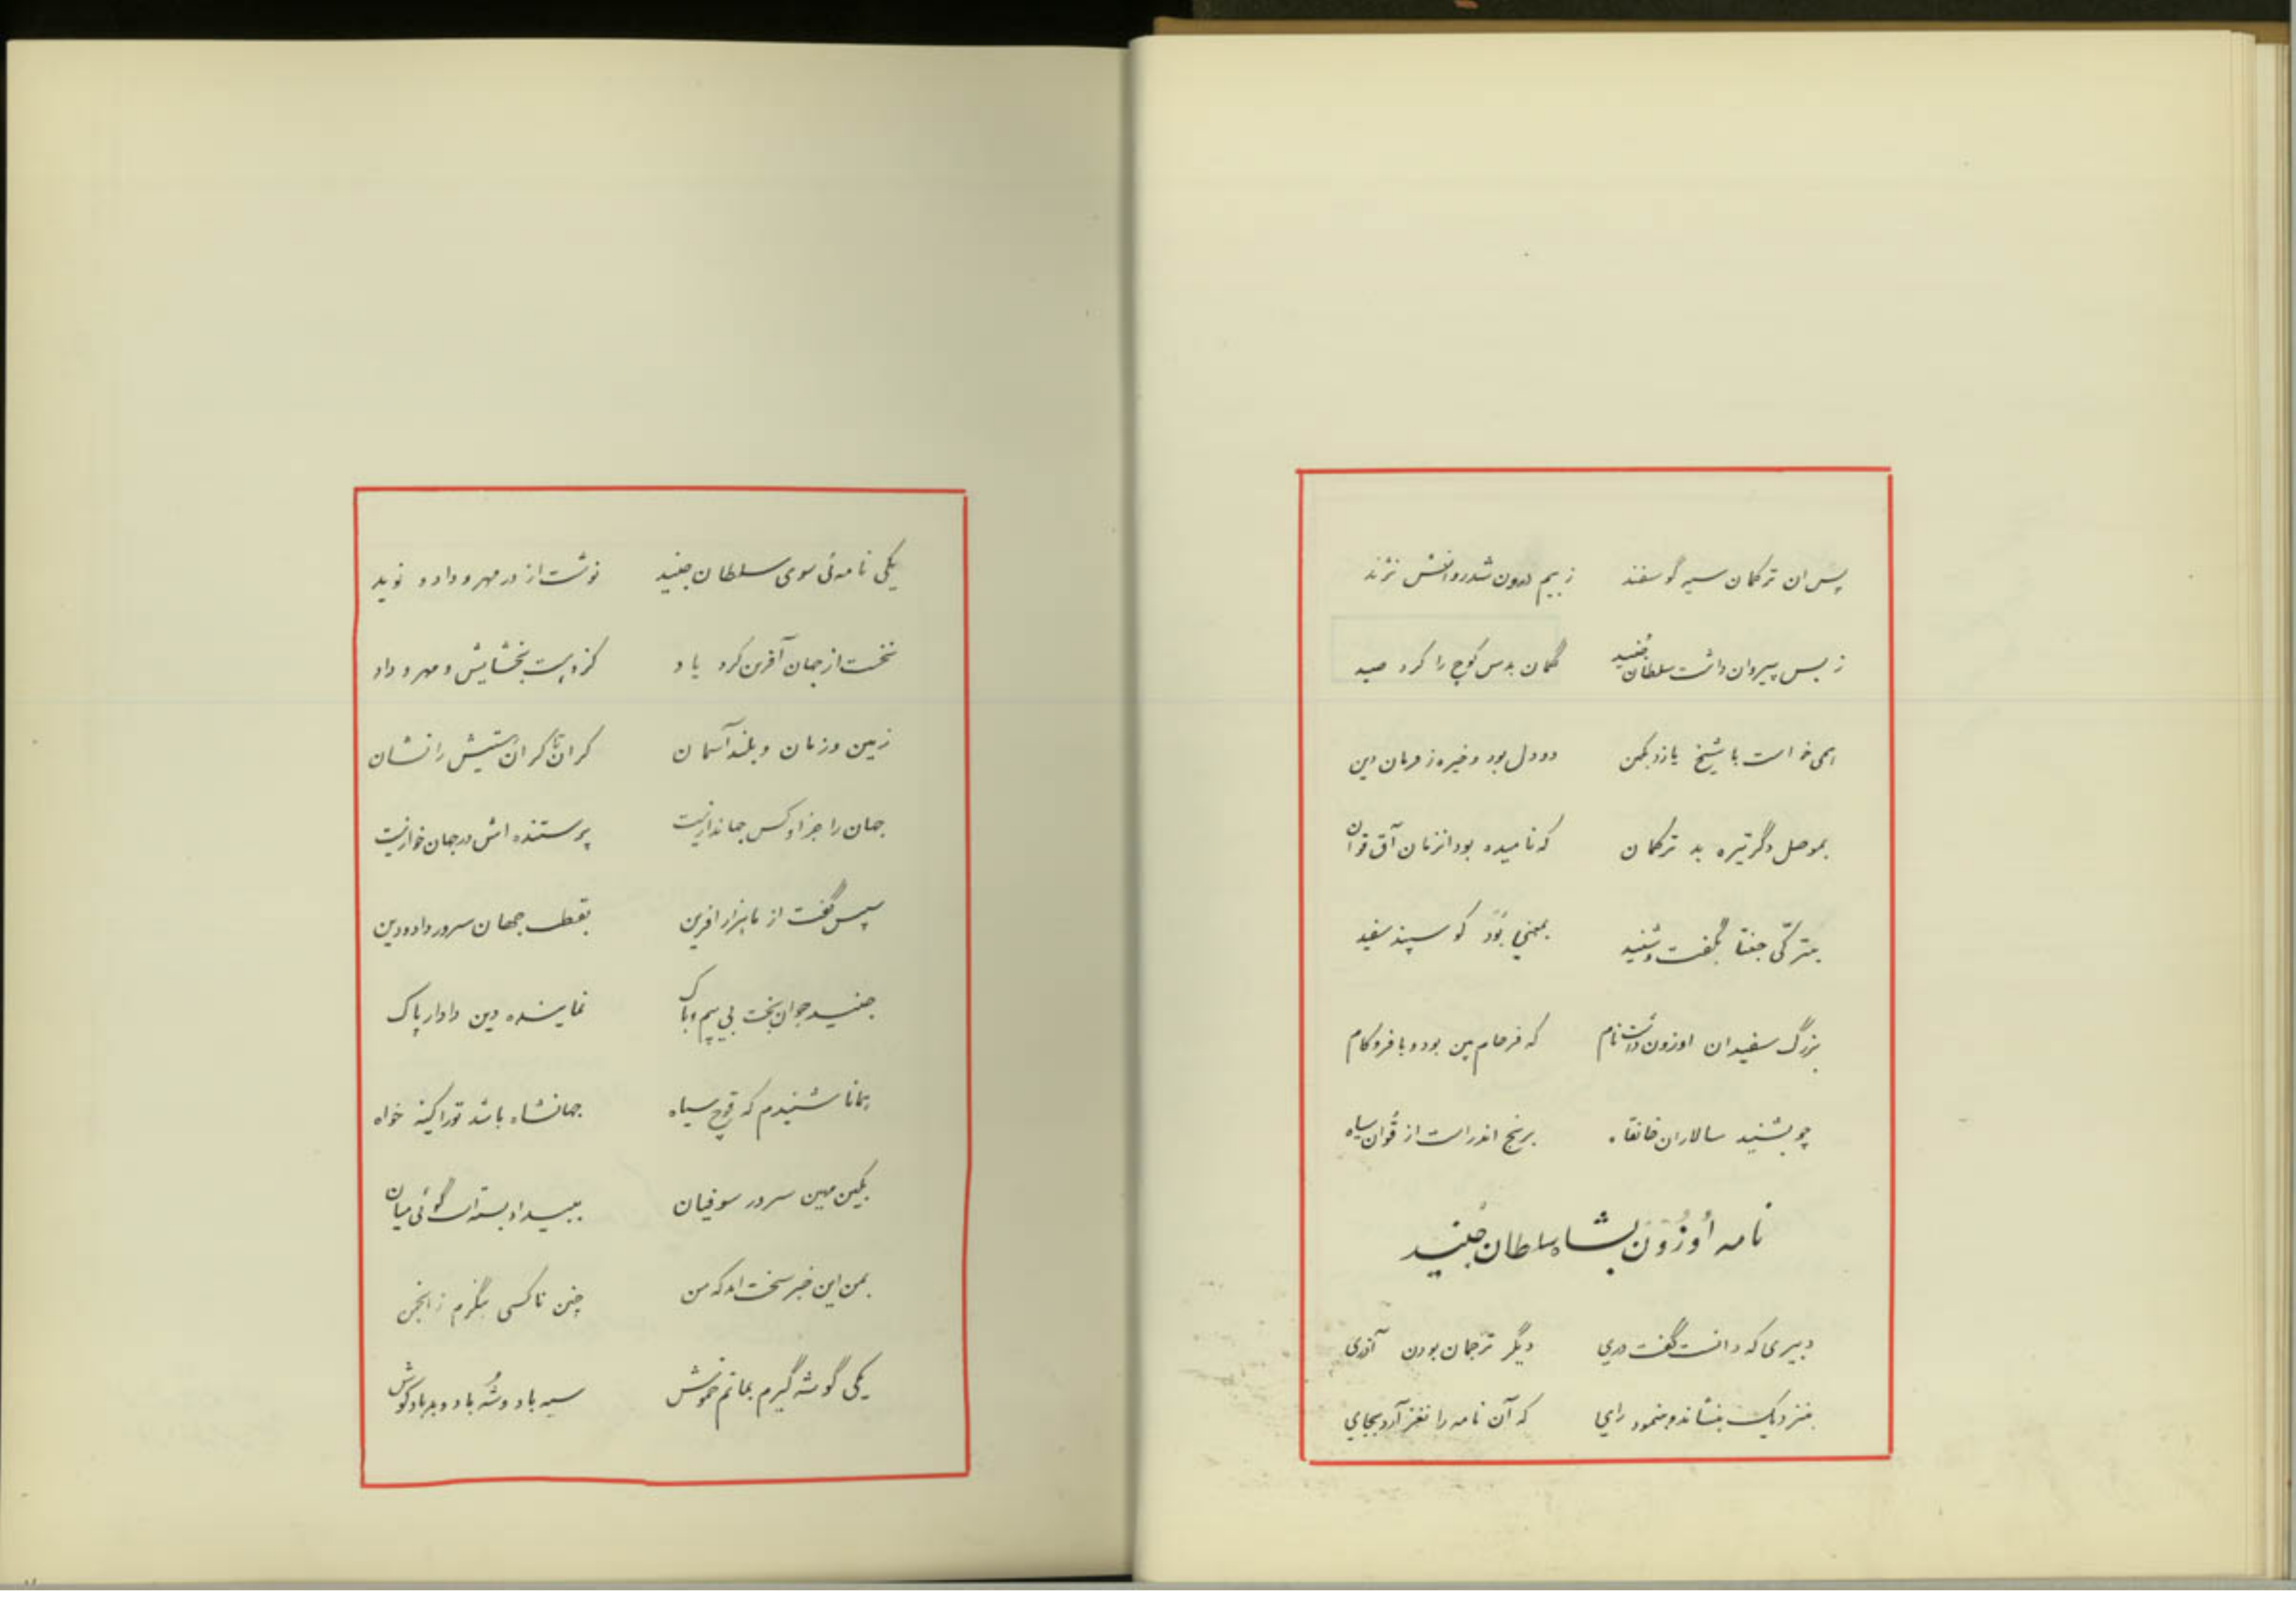 پس ان ترکمان سیه گوسفند زبیم درون شد روانش نژند
ز بس پیروان داشت سلطان جُنید گمان بدس کوچ را کرد صید
همی خواست با شیخ یازد بکین دو دل بود و خیره ز فرمان دین
بموصل دگر تیره بد ترکمان که نامیده بود انزمان آق قوان
بترکی جغتا بگفت و شنید بمعنی بُوَد گوسپند سفید
بزرگ سفیدان اوزون داشت نام که فرجام بین بود و با فر و کام
چو بشنید سالاران خانقاه برنج اندر است از قُوان سیاه
نامه اُوزُوَن بشاه سلطان جُنید
دبیری که دانست گفت دری دیگر ترجمان بودن آذری
بنزدیک بنشاند و بنمود رای که آن نامه را نغز آرد بجای
یکی نامه‌ئی سوی سلطان جنید نوشت از در مهر و داد و نوید
نخست از جهان آفرین کرد یاد کزویست بخشایش و مهر و داد
زمین و زمان و بلند آسمان کران تا کران هستیش را نشان
جهان را جز او کس جهاندار نیست پرستنده اش در جهان خوار نیست
سپس گفت از ما هزار افرین بقطب جهان سرور داد و دین
جنید جوان بخت بی بیم و باک نماینده دین دادار پاک
همانا شنیدم که قوچ سیاه جهانشاه باشد تورا کینه خواه
بکین مهین سرور سوفیان ببیداد بسته است گوئی میان
بمن این خبر سخت امد که من چنین ناکسی بنگرم ز انجمن
یکی گوشه گیرم بماتم خموش سیه باد و شُه باد و بدباد کوش